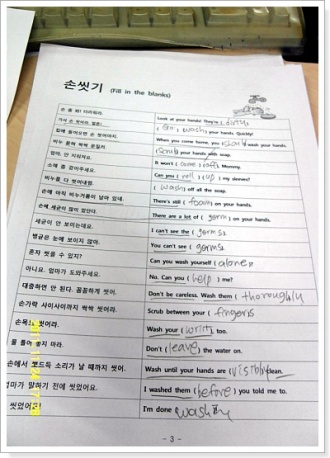 손씻기 (Fill in the blanks)
손 좀 봐! 더러워라. Look at your hands! They're ( dirty ).
가서 손 씻어라. 얼른! ( Go ) ( wash ) your hands. Quickly!
집에 들어오면 손 씻어야지. When you come home, you ( should ) wash your hands.
비누 묻혀 싹싹 문질러. ( Scrub ) your hands with soap.
엄마, 안 지워져요. It won't ( come ) ( off ), Mommy.
소매 좀 걷어주세요. Can you ( roll ) ( up ) my sleeves?
비누를 다 씻어내렴. ( Wash ) off all the soap.
손에 아직 비누거품이 남아 있네. There's still ( foam ) on your hands.
손에 세균이 많이 있단다. There are a lot of ( germ ) on your hands.
세균이 안 보이는데요. I can't see the ( germs ).
병균은 눈에 보이지 않아. You can't see ( germs ).
혼자 씻을 수 있지? Can you wash yourself ( alone )
아니요. 엄마가 도와주세요. No. Can you ( help ) me?
대충하면 안 된다. 꼼꼼하게 씻어. Don't be careless. Wash them ( thoroughly
손가락 사이사이까지 싹싹 씻어라. Scrub between your ( fingers
손목 씻어라. Wash your ( wrist ), too.
물 틀어 놓지 마라. Don't ( leave ) the water on.
손에서 뽀드득 소리가 날 때까지 씻어. Wash until your hands are ( visibly clean.
엄마가 말하기 전에 씻었어요. I washed them ( before ) you told me to.
씻었어! I'm done ( washing
- 3 -